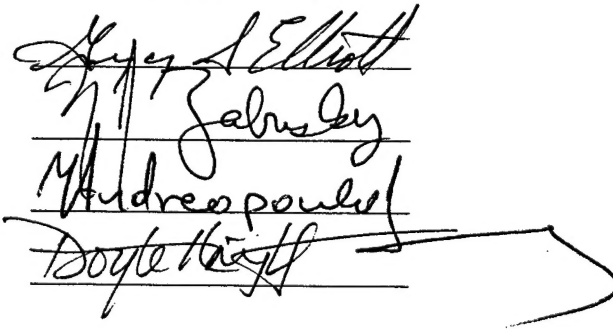 Gregory S Elliott
Zabusky
Y Andreopoulos
Doyle Knight